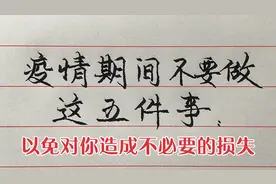 疫情期间不要做
这五件事;
以免对你造成不必要的损失